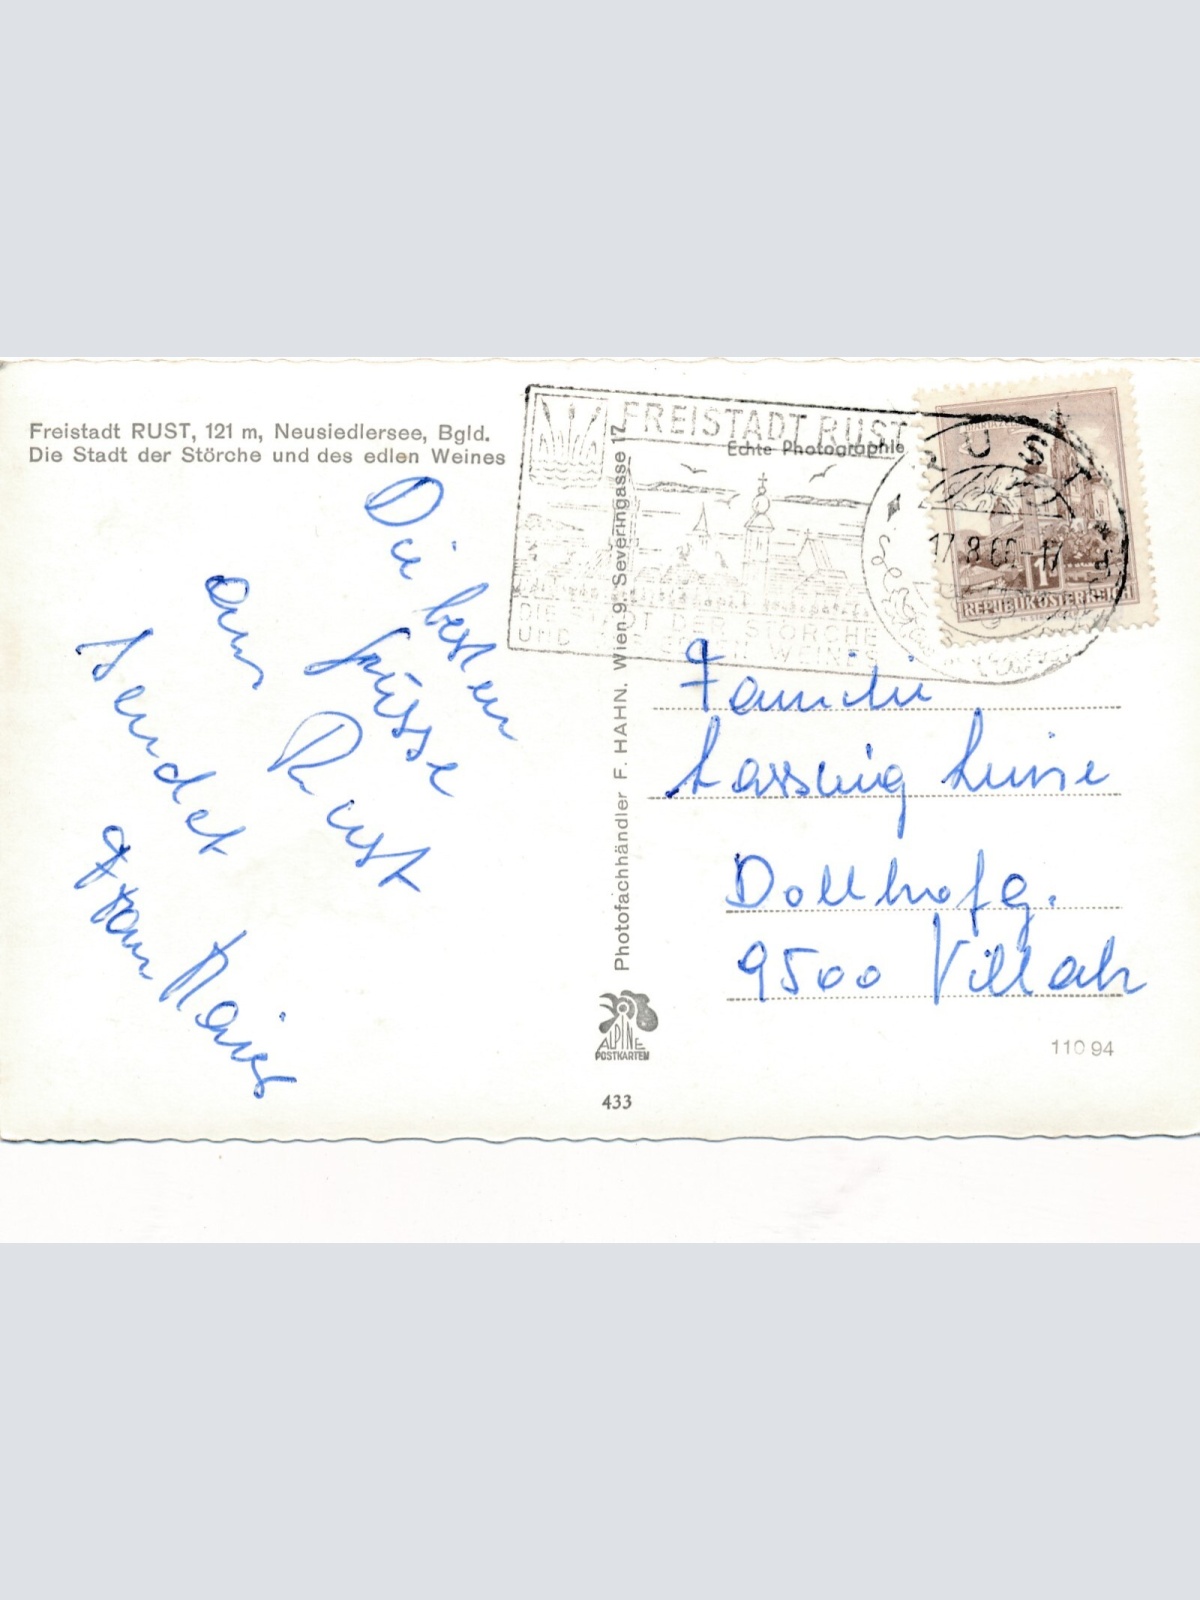 Freistadt RUST, 121 m, Neusiedlersee, Bgld.
Die Stadt der Störche und des edlen Weines
Die besten
Grüsse
aus Rust
sendet
Fam. Maier
Photofachhändler F. HAHN. Wien 9. Severingasse 17
Echte Photographie
FREISTADT RUST
DIE STADT DER STÖRCHE
UND DES EDLEN WEINES
RUST
17.8.66-17
1S
REPUBLIK ÖSTERREICH
Familie
Lassnig Luise
Dollhofg.
9500 Villach
ALPINE
POSTKARTEN
433
110 94